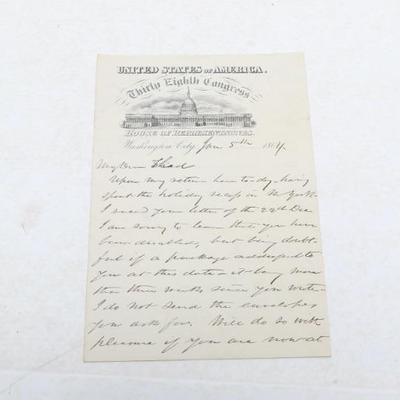 UNITED STATES OF AMERICA.
Thirty Eighth Congress
HOUSE OF REPRESENTATIVES.
Washington City, Jan 5th 1864
My Dear
Upon my return here to-day, having
spent the holiday recess in N York
I recd your letter of the 22nd Dec
I am sorry to learn that you have
been disabled, but being doubt-
ful if a package addressed to
you at this date - it being more
than three weeks since you wrote
I do not send the envelopes
you ask for. Will do so with
pleasure if you are now at